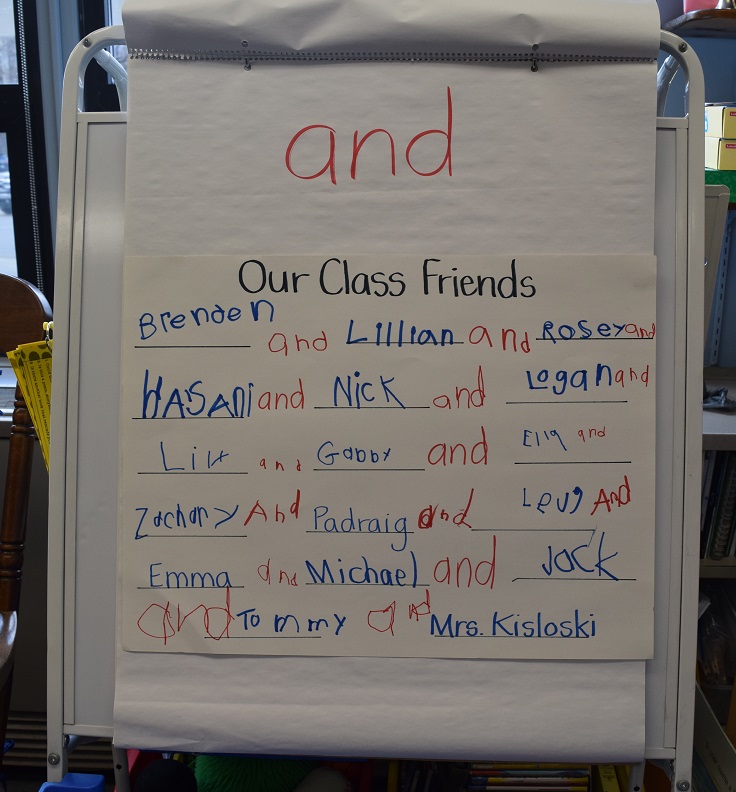 and
Our Class Friends
Brenden and Lillian and Rosey and
HASAni and Nick and Logan and
and Gabby and Ella and
Zachary And Padraig and Levi And
Emma and Michael and Jack
and Tommy and Mrs. Kisloski